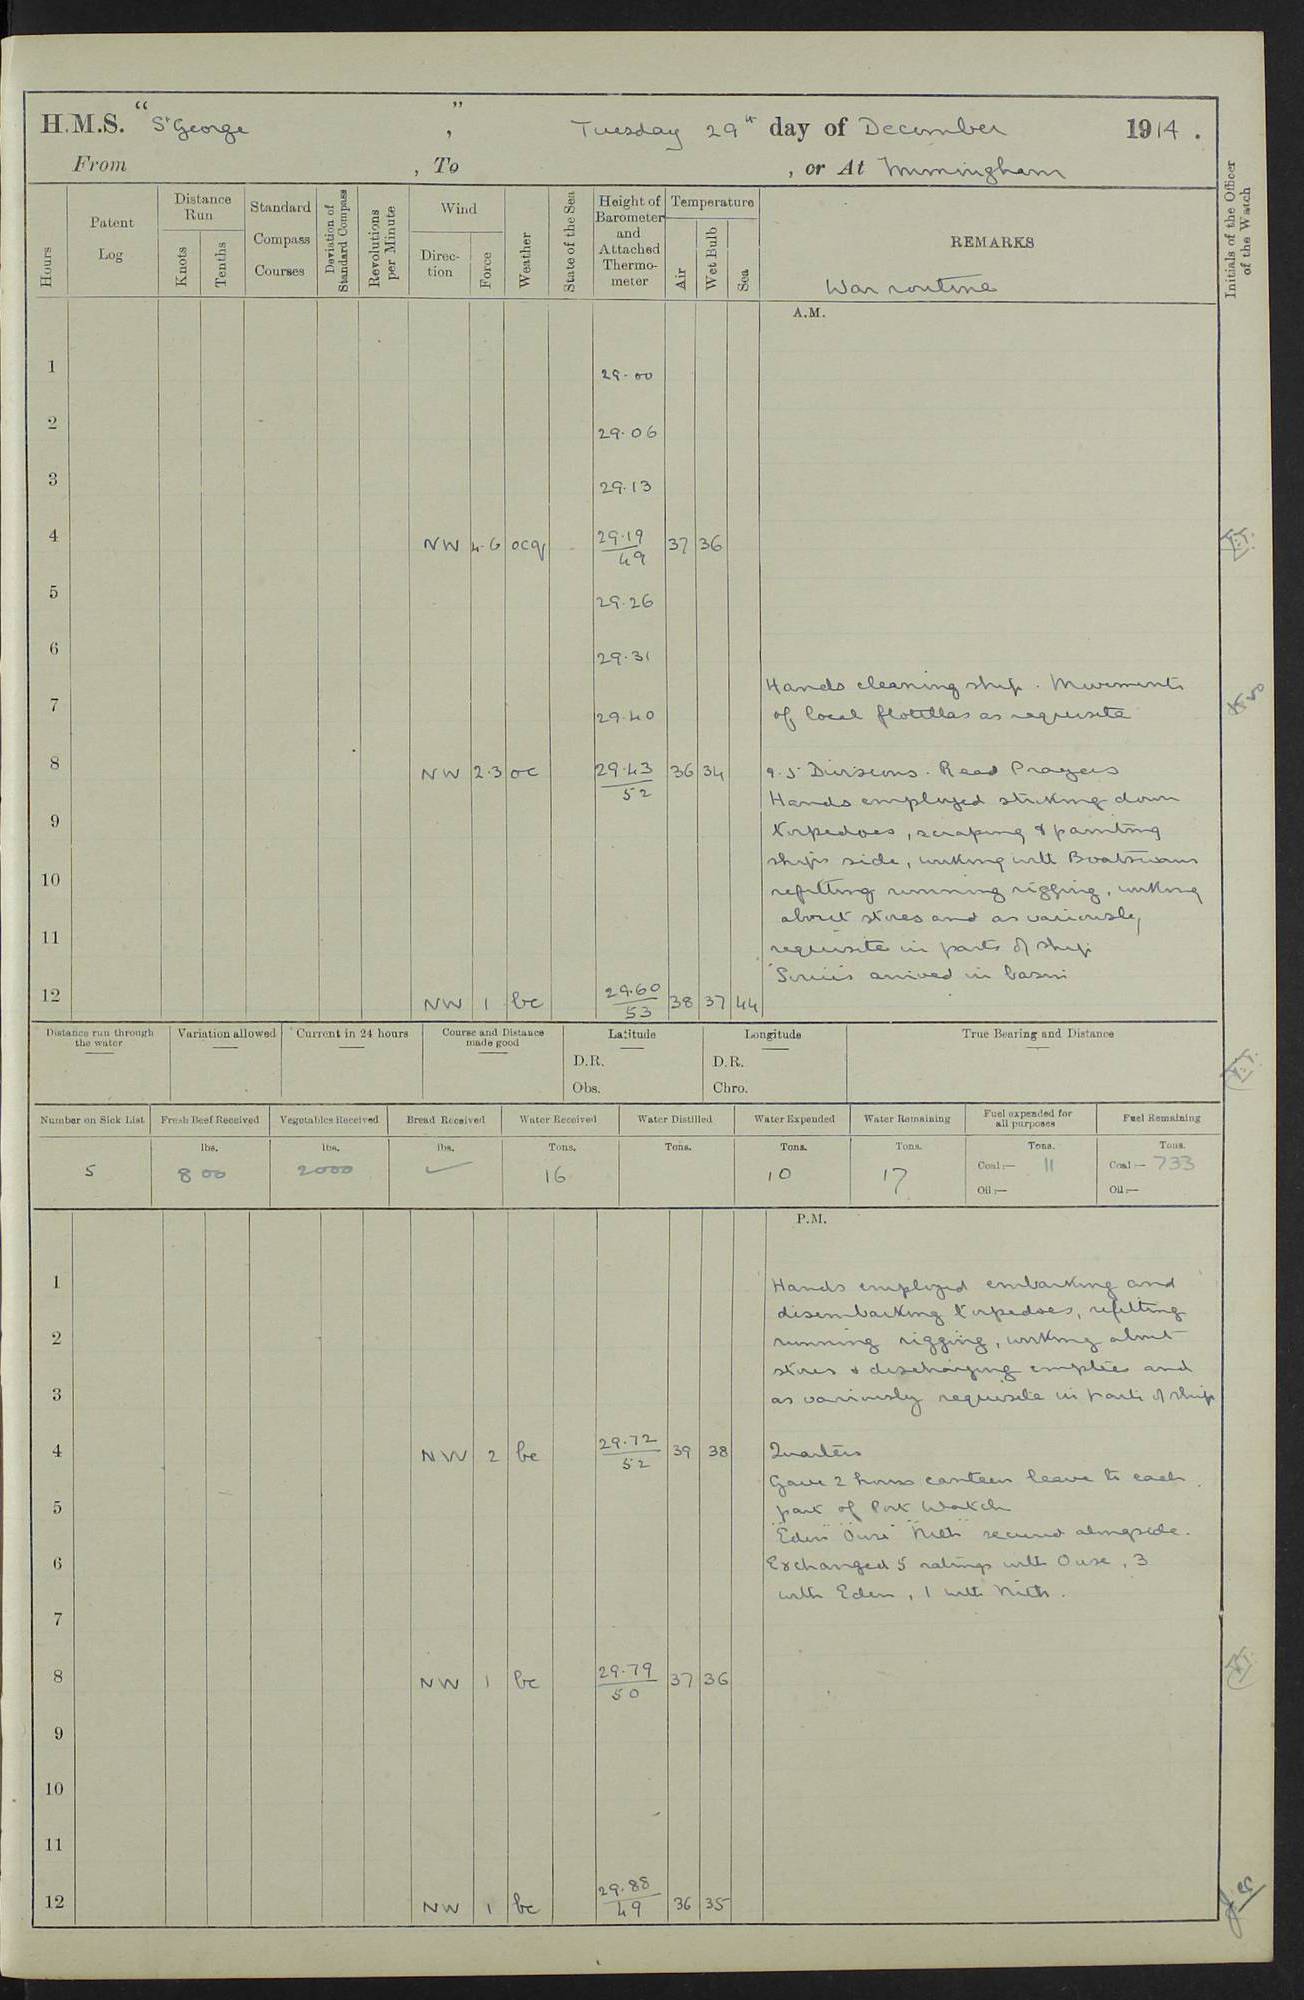 H.M.S. "St George", Tuesday 29th day of December 1914.
From , To , or At Immingham
Hours
Patent Log
Distance Run
Knots
Tenths
Standard Compass Courses
Deviation of Standard Compass
Revolutions per Minute
Wind
Direction
Force
Weather
State of the Sea
Height of Barometer and Attached Thermometer
Temperature
Air
Wet Bulb
Sea
REMARKS
Initials of the Officer of the Watch
War routine
A.M.
1 29.00
2 29.06
3 29.13
4 NW 4.6 ocq 29.19 49 37 36
5 29.26
6 29.31
Hands cleaning ship. Movements
7 29.40 of local flotillas as requisite
8 NW 2.3 oc 29.43 52 36 34 9.5 Divisions. Read Prayers
Hands employed striking down
9 torpedoes, scraping & painting
ships side, working with Boatswain
10 refitting running rigging, working
about stores and as variously
11 requisite in parts of ship
"Sirius" arrived in basin
12 NW 1 bc 29.60 53 38 37 44
Distance run through the water
Variation allowed
Current in 24 hours
Course and Distance made good
Latitude
D.R.
Obs.
Longitude
D.R.
Chro.
True Bearing and Distance
Number on Sick List
Fresh Beef Received
Vegetables Received
Bread Received
Water Received
Water Distilled
Water Expended
Water Remaining
Fuel expended for all purposes
Fuel Remaining
lbs. lbs. lbs. Tons. Tons. Tons. Tons. Tons. Tons.
5 800 2000 16 10 17 Coal:— 11 Coal:— 733
Oil:— Oil:—
P.M.
1 Hands employed embarking and
disembarking torpedoes, refitting
2 running rigging, working about
stores & discharging empties and
3 as variously requisite in parts of ship
4 NW 2 bc 29.72 52 39 38 Quarters
Gave 2 hours canteen leave to each
5 part of Port Watch
"Eden" "Ouse" "Nith" secured alongside.
6 Exchanged 5 ratings with Ouse, 3
with Eden, 1 with Nith.
7
8 NW 1 bc 29.79 50 37 36
9
10
11
12 NW 1 bc 29.88 49 36 35